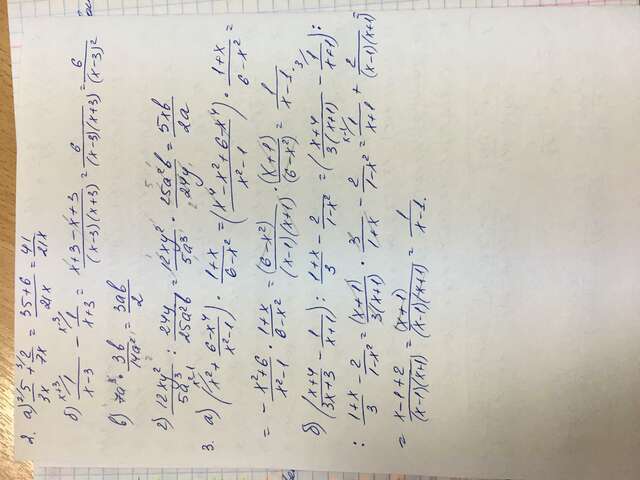 2. а) 5/3x + 2/7x = (35+6)/21x = 41/21x
б) 1/(x-3) - 1/(x+3) = (x+3-x+3)/((x-3)(x+3)) = 6/((x-3)(x+3)) = 6/(x-3)²
в) 7a³ · 3b/14a² = 3ab/2
г) 12xy²/5a³ : 24y/25a²b = 12xy²/5a³ · 25a²b/24y = 5xb/2a
3. а) (x² + (6-x⁴)/(x²-1)) · (1+x)/(6-x²) = ((x⁴-x²+6-x⁴)/(x²-1)) · (1+x)/(6-x²) =
= (-x²+6)/(x²-1) · (1+x)/(6-x²) = (6-x²)/((x-1)(x+1)) · (x+1)/(6-x²) = 1/(x-1).
б) ((x+4)/(3x+3) - 1/(x+1)) : (1+x)/3 - 2/(1-x²) = ((x+4)/(3(x+1)) - 1/(x+1)) :
: (1+x)/3 - 2/(1-x²) = (x+1)/(3(x+1)) · 3/(1+x) - 2/(1-x²) = 1/(x+1) + 2/((x-1)(x+1)) =
= (x-1+2)/((x-1)(x+1)) = (x+1)/((x-1)(x+1)) = 1/(x-1).